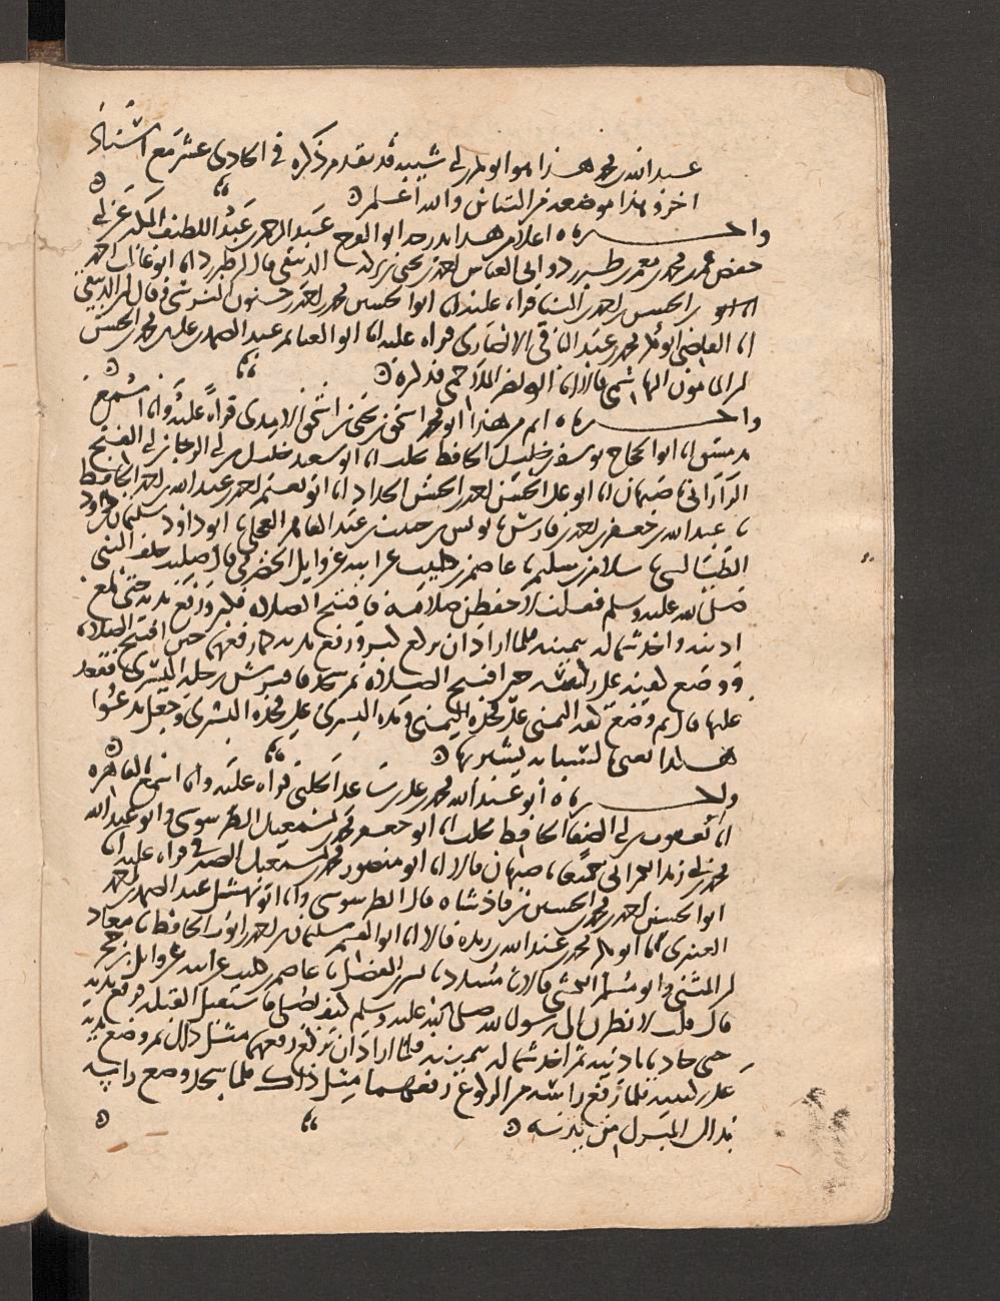 عبد الله بن محمد هذا هو ابو بكر بن ابي شيبه قد تقدم ذكره في الحادي عشر مع اسناد
اخر وهذا موضعه من الثاني والله اعلم
واخبرناه اعلا من هذا بدرجه ابو الفرج عبد الرحمن بن عبد اللطيف المكبر عن ابي
حفص عمر بن محمد بن معمر بن طبرزد وابي العباس احمد بن يحيى بن بركه الدبيقي قال ابن طبرزد انا ابو غالب احمد
بن الحسن بن احمد بن البنا قراه عليه انا ابو الحسين محمد بن احمد بن حسنون النرسي وقال ابن الدبيقي
انا القاضي ابو بكر محمد بن عبد الباقي الانصاري قراه عليه انا ابو الغنايم عبد الصمد بن علي بن محمد بن الحسن
بن المامون الهاشمي قالا انا ابو نصر الملاحمي فذكره
واخبرناه اتم من هذا ابو محمد اسحق بن يحيى بن اسحق الامدي قراءة عليه وانا اسمع
بدمشق انا ابو الحجاج يوسف بن خليل الحافظ بحلب انا ابو سعيد خليل بن ابي الرجا بن ابي الفتح
الراراني باصبهان انا ابو علي الحسن بن احمد بن الحسن الحداد انا ابو نعيم احمد بن عبد الله بن احمد الحافظ
نا عبد الله بن جعفر بن احمد بن فارس نا يونس بن حبيب بن عبد القاهر العجلي نا ابو داود سليمان بن داود
الطيالسي نا سلام بن سليم نا عاصم بن كليب عن ابيه عن وايل الحضرمي قال صليت خلف النبي
صلى الله عليه وسلم فقلت لاحفظن صلاته فافتتح الصلاة فكبر ورفع يديه حتى بلغ
اذنيه واخذ شماله بيمينه فلما اراد ان يركع كبر ورفع يديه كما رفعهما حين افتتح الصلاه
ووضع كفيه على ركبتيه حين افتتح الصلاة ثم سجد فافترش رجله اليسرى فقعد
عليها قال ثم وضع كفه اليمنى على فخذه اليمنى ويده اليسرى على فخذه اليسرى وجعل يدعوا
هكذا يعني بالسبابه يشير بها
واخبرناه ابو عبد الله محمد بن علي بن ساعد الحلبي قراه عليه وانا اسمع بالقاهره
انا يوسف بن خليل الحافظ بحلب انا ابو جعفر محمد بن اسمعيل الطرسوسي وابو عبد الله
محمد بن ابي زيد الكراني جميعا باصبهان قالا انا ابو منصور محمود بن اسمعيل الصيرفي قراه عليه انا
ابو الحسين احمد بن محمد بن الحسين بن فاذشاه قال الطرسوسي وانا ابو نهشل عبد الصمد بن احمد
العنبري انا ابو بكر محمد بن عبد الله بن ريذه قالا انا ابو القسم سليمان بن احمد بن ايوب الحافظ نا معاذ
بن المثنى وابو مسلم الكشي قالا نا مسدد نا بشر بن المفضل نا عاصم بن كليب عن ابيه عن وايل بن حجر
قال قلت لانظرن الى رسول الله صلى الله عليه وسلم كيف يصلي فاستقبل القبله فرفع يديه
حتى حاذيا اذنيه ثم اخذ شماله بيمينه فلما اراد ان يركع رفعهما مثل ذلك ثم وضع يديه
على ركبتيه فلما رفع راسه من الركوع رفعهما مثل ذلك فلما سجد وضع راسه
بذلك المنزل من يديه